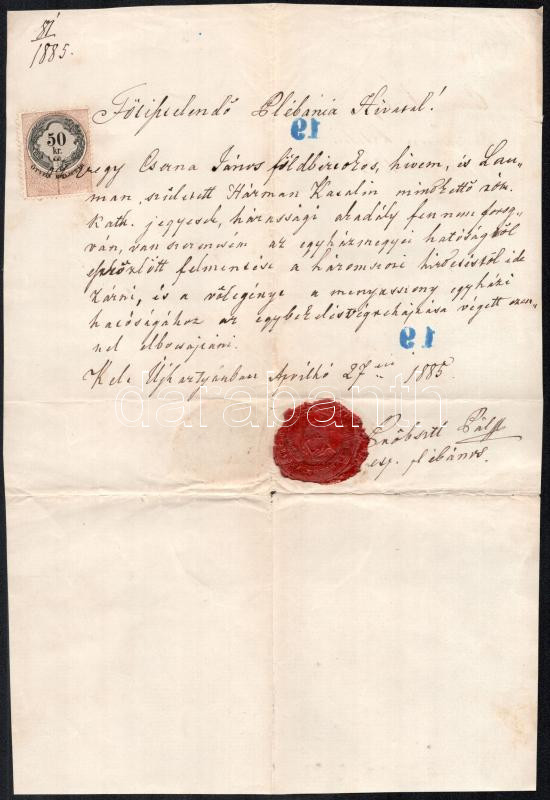 81
1885.
Főtisztelendő Plébánia Hivatal!
50
kr.
19
vagy Cserna János földbirtokos, hívem, és Lau-
man született Hárman Katalin mindkettő róm.
kath. jegyesek, házassági akadály fenn nem forog-
ván, van szerencsém az egyházmegyei hatóságtól
felmentést a háromszori hirdetéstől ide
zárni, és a vőlegényt a menyasszony egyházi
hatóságához az egybekelés végrehajtása végett ezen-
nel elbocsájtani.
19
Kelt Újhartyánban Aprilhó 27 én 1885
Pál
esp. plébános.
databanth